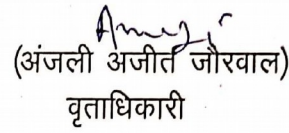 (अंजली अजीत जौरवाल)
वृताधिकारी